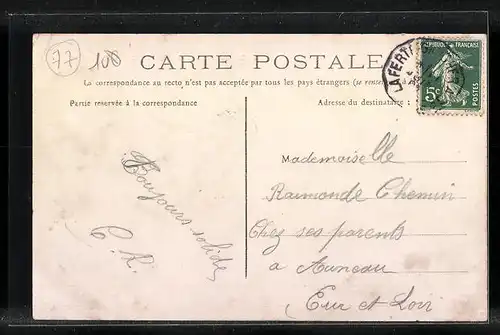 77 108
CARTE POSTALE
La correspondance au recto n'est pas acceptée par tous les pays étrangers (se rense
Partie réservée à la correspondance
Adresse du destinataire
LA FERTÉ
REPUBLIQUE FRANÇAISE
5c POSTES
Mademoiselle
Raimonde Chemin
Chez ses parents
à Auneau
Eur et Loir
Toujours solide
C. R.